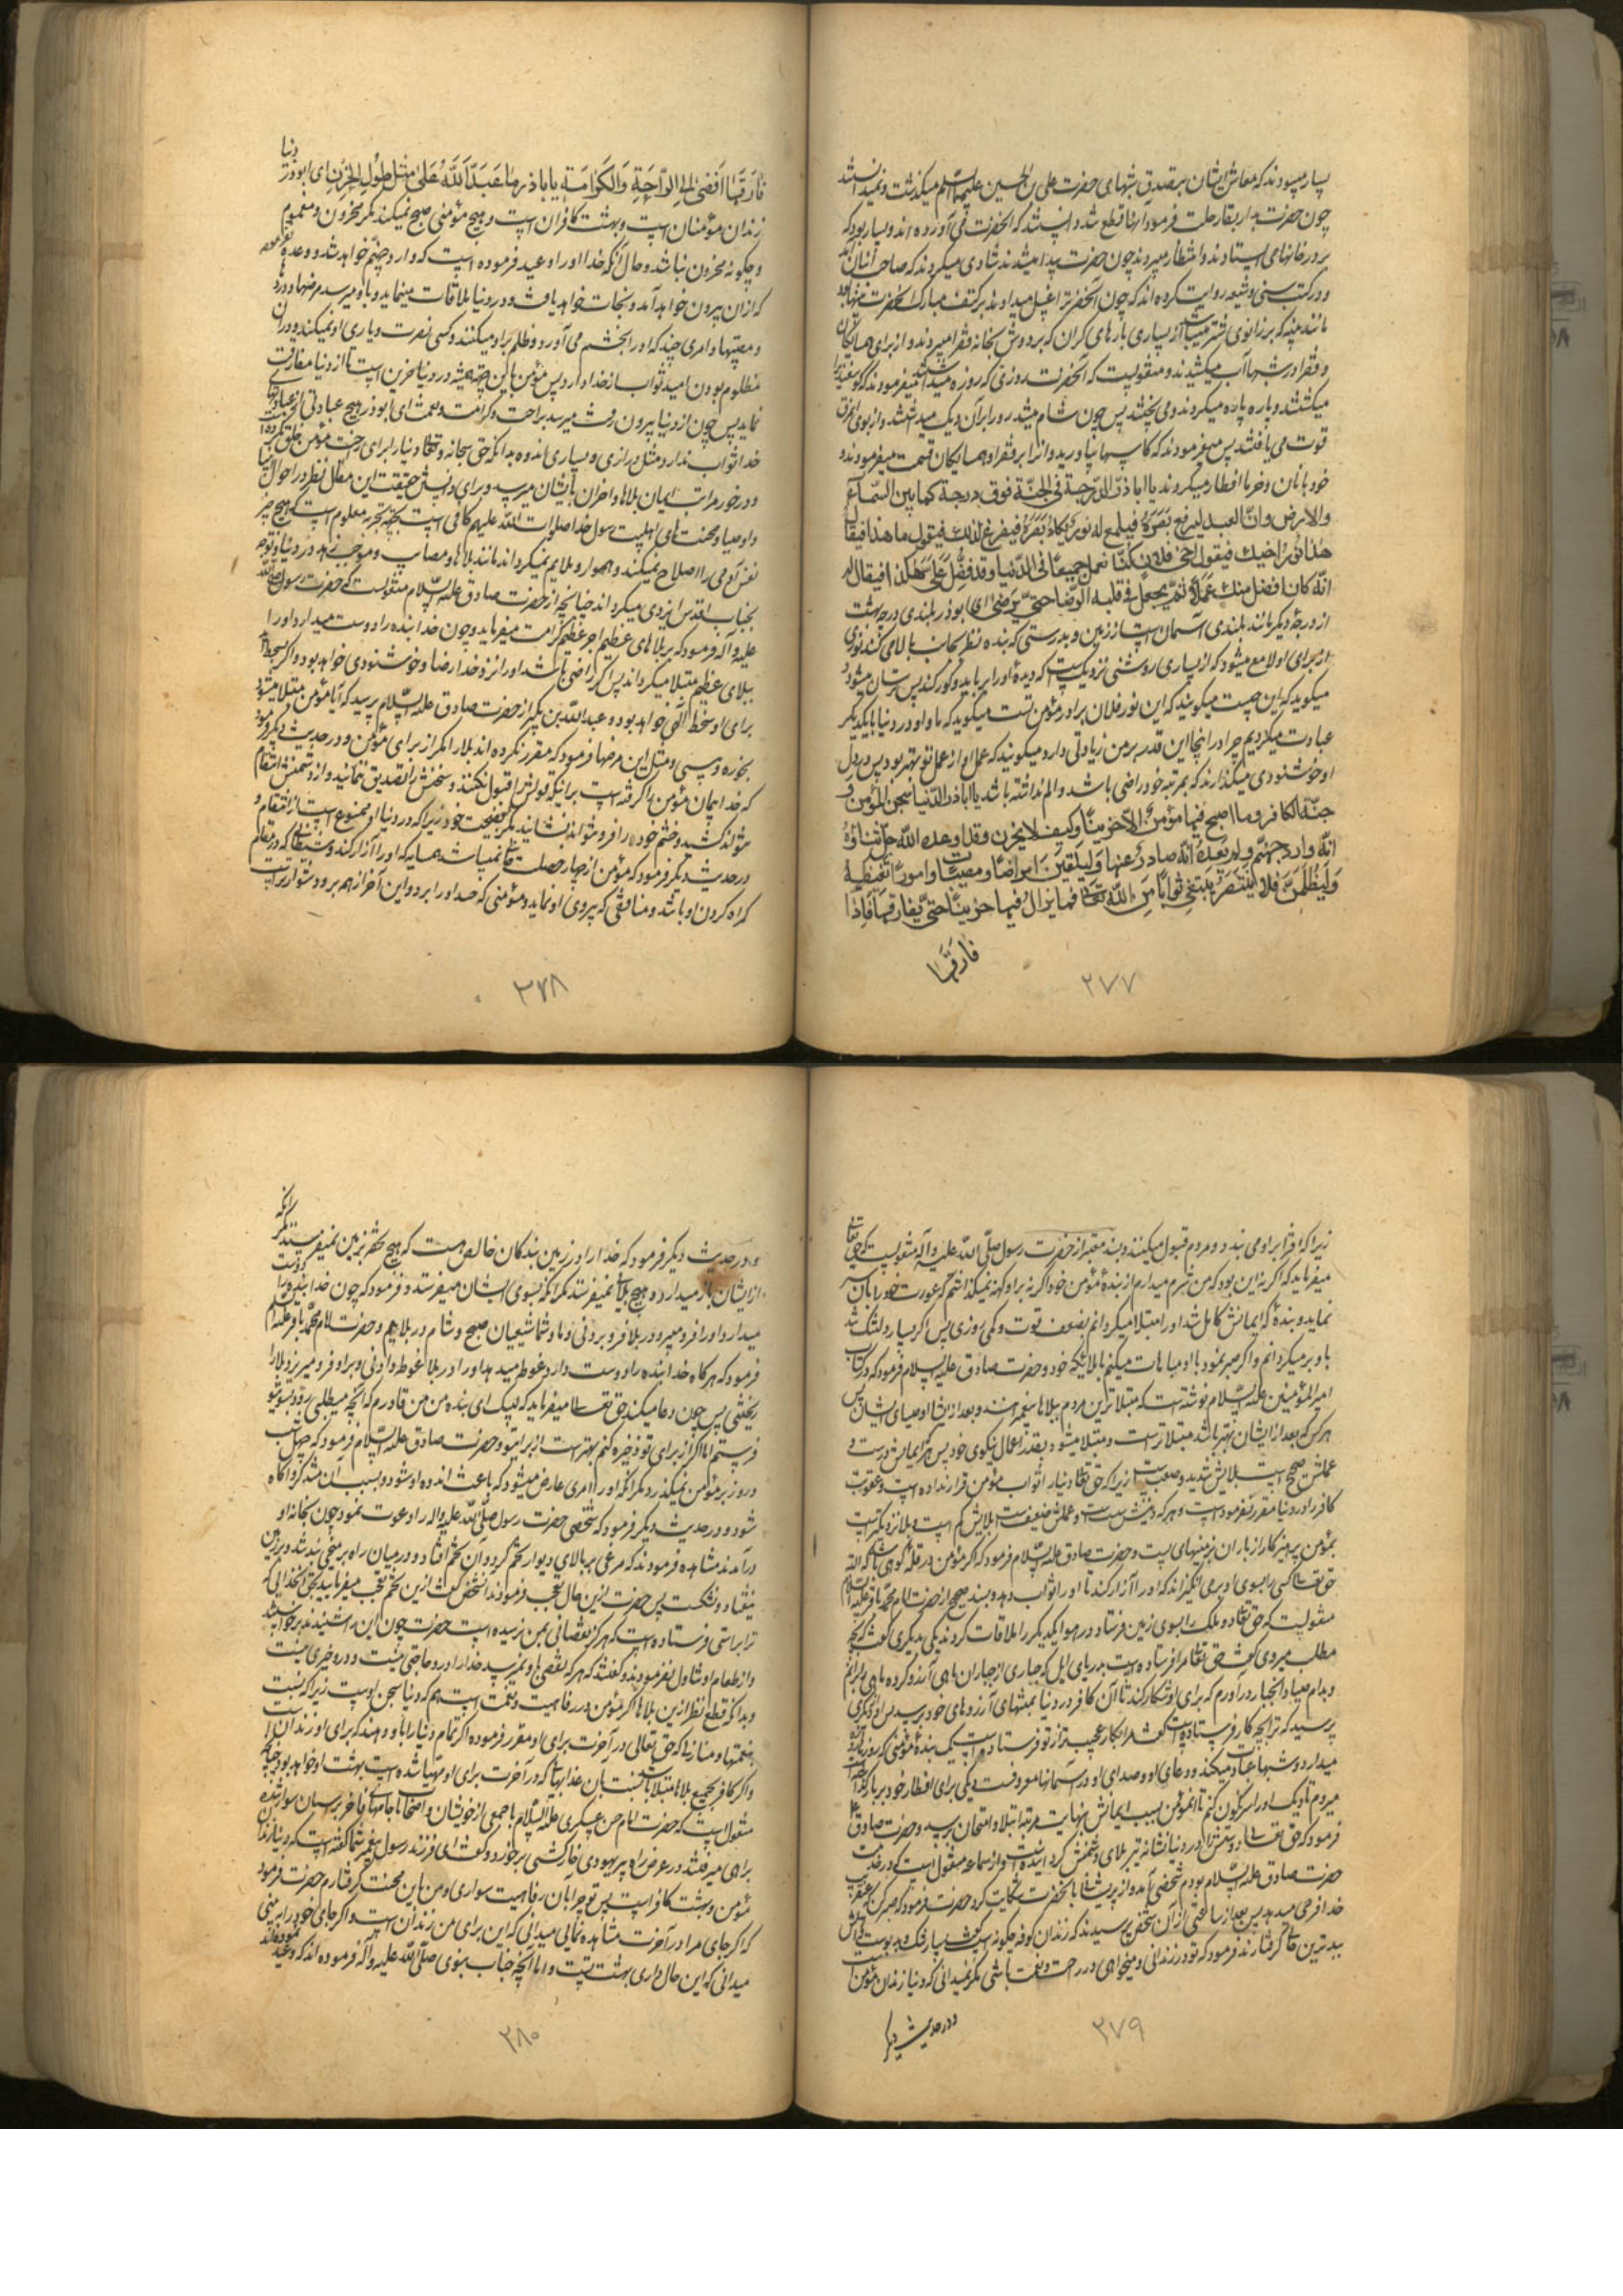 بسیار میبودند که معاش ایشان بتصدق شبهای حضرت علی بن الحسین علیهما السلام میگذشت و نمیدانستند
چون حضرت بدار بقا رحلت فرمود آنها قطع شد دانستند که آنحضرت می آورده اند و بسیار بود که
بر در خانهای می ایستادند و انتظار میبردند چون حضرت پیدا میشدند شادی میکردند که صاحب انبان آمد
و در کتب سنی و شیعه روایت کرده اند که چون آنحضرت را غسل میدادند بر کتف مبارک آنحضرت پینها بود
مانند پینه که بر زانوی شتر میباشد از بسیاری بارهای گران که بر دوش بخانه فقرا میبردند و از برای همسایگان
و فقرا در شبها آب میکشیدند و منقولست که آنحضرت روزی که روزه میداشتند میفرمودند که گوسفندیرا
میکشتند و پاره پاره میکردند و می پختند پس چون شام میشد بر در آن دیک میداشتند و از بوی مرق
قوت می یافتند پس میفرمودند که کاسها بیاورید و آنرا بر فقرا و همسایگان قسمت میفرمودند و
خود بانان و خرما افطار میکردند یا اباذر الدرجة فی الجنة فوق درجة کما بین السماء
والارض وان العبد لیرفع بصره فیلمع له نور یکاد بصره فیفزع لذلک فیقول ما هذا فیقال
هذا نور اخیک فیقول اخی فلان کنا نعمل جمیعا فی الدنیا وقد فضل علی هکذا فیقال له
انه کان افضل منک عملا ثم یجعل فی قلبه الرضا حتی یرضی ای ابوذر بلندی درجه بهشت
از درجهٔ دیگر مانند بلندی آسمان است از زمین و بدرستی که بنده نظر بجانب بالا می کند نوری
از برای او لامع میشود که از بسیاری روشنی نزدیکست که دیدهٔ او را برباید و کور کند پس ترسان میشود و
میگوید که این چیست میگویند که این نور فلان برادر مؤمن تست میگوید که ما و او در دنیا با یکدیگر
عبادت میکردیم چرا در اینجا این قدر بر من زیادتی دارد میگویند که عمل او از عمل تو بهتر بود پس در دل
او خوشنودی میگذارند که بمرتبه خود راضی باشد و الم نداشته باشد یا اباذر الدنیا سجن المؤمن و
جنة الکافر وما اصبح فیها مؤمن الا حزینا وکیف لا یحزن وقد اوعده الله جل ثناؤه
انه وارد جهنم ولم یعده انه صادر عنها ولیلقین امراضا ومصیبات وامورا تغیظه
ولیظلمن فلا ینتصر یبتغی ثوابا من الله تعالی فما یزال فیها حزینا حتی یفارقها فاذا
فارقها
۲۷۷
فارقها افضی الی الراحة والکرامة یا اباذر ما عبد الله علی مثل طول الحزن ای ابوذر دنیا
زندان مؤمنان است و بهشت کافران است و هیچ مؤمنی صبح نمیکند مگر محزون و مغموم
و چگونه محزون نباشد و حال آنکه خدا او را وعید فرموده است که وارد جهنم خواهد شد و وعده نفرموده
که ازان بیرون خواهد آمد و نجات خواهد یافت و در دنیا ملاقات مینماید و باو میرسد مرضها و دردها
و مصیبتها و امری چند که او را بخشم می آورد و ظلم بر او میکنند و کسی نصرت و یاری او نمیکند و در آن
مظلوم بودن امید ثواب از خدا دارد پس مؤمن باین جهة همیشه در دنیا حزین است تا از دنیا مفارقت
نماید پس چون از دنیا بیرون رفت میرسد براحت و کرامت و نعمت ای ابوذر هیچ عبادتی از عبادتهای
خدا ثواب ندارد مثل درازی و بسیاری اندوه بدانکه حق سبحانه و تعالی دنیا را برای راحت مؤمن خلق نکرده است
و در خور مراتب ایمان بلاها و احزان بایشان میرسد و برای دانستن حقیقت این مقال نظر در احوال انبیا
و اوصیا و محنت های اهلبیت رسول خدا صلوات الله علیهم کافی است بتجربه معلوم است که هیچ چیز
نفس آدمی را اصلاح نمیکند و هموار و ملایم نمیگرداند مانند بلاها و مصایب و موجب زهد در دنیا و توجه
بجناب اقدس ایزدی میگرداند چنانچه از حضرت صادق علیه السلام منقولست که حضرت رسول صلی الله
علیه و آله فرمود که بر بلاهای عظیم اجر عظیم کرامت میفرماید و چون خدا بنده را دوست میدارد او را
ببلای عظیم مبتلا میگرداند پس اگر راضی باشد او را نزد خدا رضا و خوشنودی خواهد بود و اگر بسخط آید
برای او سخط الهی خواهد بود و عبدالله بن بکیر از حضرت صادق علیه السلام پرسید که آیا مؤمن مبتلا میشود
بخوره و پیسی و مثل این مرضها فرمود که مقرر نکرده اند بلا را مگر از برای مؤمن و در حدیث دیگر فرمود
که خدا پیمان مؤمن را گرفته است بر اینکه قولش را قبول نکنند و سخنش را تصدیق ننمایند و از دشمنش انتقام
نتواند کشید و خشم خود را فرو نتواند نشانید مگر بفضیحت خود زیرا که در دنیا او ممنوع است از انتقام و
در حدیث دیگر فرمود که مؤمن از چهار خصلت خالی نمیباشد همسایه که او را آزار کند و شیطانی که در مقام
گمراه کردن او باشد و منافقی که پیروی او نماید و مؤمنی که حسد او را برد و این آخر از همه بر او دشوارتر است
۲۷۸
زیرا که افترا بر او می بندد و مردم قبول میکنند و بسند معتبر از حضرت رسول صلی الله علیه و آله منقولست که حق تعالی
میفرماید که اگر نه این بود که من شرم میدارم از بندهٔ مؤمن خود اگر نه بر او کهنه نمیگذاشتم که عورت خود را بآن ستر
نماید و بندهٔ که ایمانش کامل شد او را مبتلا میگردانم بضعف قوت و کمی روزی پس اگر بسیار دلتنگ شد
باو بر میگردانم و اگر صبر نمود باو مباهات میکنم با ملائکه خود و حضرت صادق علیه السلام فرمود که در کتاب
امیر المؤمنین علیه السلام نوشته است که مبتلاترین مردم ببلاها پیغمبرانند و بعد از ایشان اوصیای ایشان پس
هر کس که بعد از ایشان بهتر باشد مبتلاتر است و مبتلا میشود بقدر اعمال نیکوی خود پس هر که ایمانش درست و
عملش صحیح است بلایش شدید و صعب است زیرا که حق تعالی دنیا را ثواب مؤمن قرار نداده است و عقوبت
کافر را در دنیا مقرر نفرموده است و هر که دینش سست و عملش ضعیفست بلایش کم است و بلا نزدیکتر است
بمؤمن پرهیزکار از باران بزمینهای پست و حضرت صادق علیه السلام فرمود که اگر مؤمن در قلهٔ کوهی باشد البته
حق تعالی کسی را بسوی او برمی انگیزاند که او را آزار کند تا او را ثواب دهد و بسند صحیح از حضرت امام محمد باقر علیه السلام
منقولست که حق تعالی دو ملک را بسوی زمین فرستاد در هوا یکدیگر را ملاقات کردند یکی بدیگری گفت بچه
مطلب میروی گفت حق تعالی مرا فرستاده است بدریای ایل که جباری از جباران ماهی آرزو کرده ماهی برانم
و بدام صیاد آنجبار در آورم که برای او شکار کند تا آن کافر در دنیا بمنتهای آرزوهای خود برسد پس او از دیگری
پرسید که ترا بچه کار فرستاده است گفت مرا بکار عجیبتر از تو فرستاده است یک بندهٔ مؤمنی که روزها روزه
میدارد و شبها عبادت میکند و دعای او و صدای او در آسمانها معروفست دیکی برای افطار خود بر بار گذاشته است
میروم تا دیک او را سرنگون کنم تا آنمؤمن بسبب ایمانش بنهایت مرتبه ابتلا و امتحان برسد و حضرت صادق
فرمود که حق تعالی دوستش را در دنیا نشانه تیر بلای دشمنش گردانیده است و از سماعه منقول است که در خدمت
حضرت صادق علیه السلام بودم شخصی آمد و از پریشانی بآنحضرت شکایت کرد حضرت فرمود که صبر کن که عنقریب
خدا فرجی میدهد پس بعد از ساعتی از آن شخص پرسیدند که زندان کوفه چگونه است گفت بسیار تنگ و بدبوست و اهلش
ببدترین حالی گرفتارند فرمود که تو در زندانی و میخواهی در راحت و نعمت باشی مگر نمیدانی که دنیا زندان مؤمن است
و در حدیث دیگر
۲۷۹
و در حدیث دیگر فرمود که خدا را در زمین بندگان خالص هست که هیچ تحفه بزمین نمیفرستد مگر آنکه
از ایشان باز میدارد و هیچ بلائی نمیفرستد مگر آنکه بسوی ایشان میفرستد و فرمود که چون خدا بنده را دوست
میدارد او را فرو میبرد در بلا فرو بردنی و ما و شما شیعیان صبح و شام در بلائیم و حضرت امام محمد باقر علیه السلام
فرمود که هر گاه خدا بنده را دوست دارد غوطه میدهد او را در بلا غوطه دادنی و بر او فرو میریزد بلا را
ریختنی پس چون دعا میکند حق تعالی میفرماید که لبیک ای بنده من من قادرم که آنچه میطلبی بزودی بسوی تو
فرستم اما اگر از برای تو ذخیره کنم بهتر است از برای تو و حضرت صادق علیه السلام فرمود که چهل شب
و روز بر مؤمن نمیگذرد مگر آنکه او را امری عارض میشود که باعث اندوه او شود و بسبب آن متذکر و آگاه
شود و در حدیث دیگر فرمود که شخصی حضرت رسول صلی الله علیه و اله را دعوت نمود چون بخانه او
درآمدند مشاهده فرمودند که مرغی بر بالای دیوار تخم کرد و آن تخم افتاد و در میان راه بر میخی بند شد و بر زمین
نیفتاد و نشکست پس حضرت ازین حال تعجب فرمودند آنشخص گفت ازین تخم تعجب میفرمائید بحق آنخدائی که
ترا براستی فرستاده است که هرگز نقصانی بمن نرسیده است حضرت چون این را شنیدند برخواستند
و از طعام او تناول نفرمودند و گفتند که هر که نقصی باو نمیرسد خدا را در او حاجتی نیست و در او خیری نیست
و بدانکه قطع نظر ازین بلاها اگر مؤمن در رفاهیت و نعمت است هم که دنیا سجن اوست زیرا که نسبت
بنعمتها و منازلی که حق تعالی در آخرت برای او مقرر فرموده اگر تمام دنیا را باو دهند که برای او زندان است
و اگر کافر بجمیع بلاها مبتلا باشد نسبت بآن عذابها که در آخرت برای او مهیا شده است بهشت او خواهد بود چنانچه
منقول است که حضرت امام حسن عسکری علیه السلام با جمعی از خویشان و اصحاب با جامهای فاخر بر اسبان سوار شده
براهی میرفتند در عرض راه پیر یهودی خارکشی برخورد و گفت ای فرزند رسول پیغمبر شما گفته است که دنیا زندان
مؤمن و بهشت کافر است پس تو چرا بآن رفاهیت سواری و من باین محنت گرفتارم حضرت فرمود
که اگر جای مرا در آخرت مشاهده نمائی میدانی که این برای من زندان است و اگر جای خود را ببینی
میدانی که این حال داری بهشت تست و اما آنچه جناب نبوی صلی الله علیه و آله فرموده اند که وعید نموده اند
۲۸۰